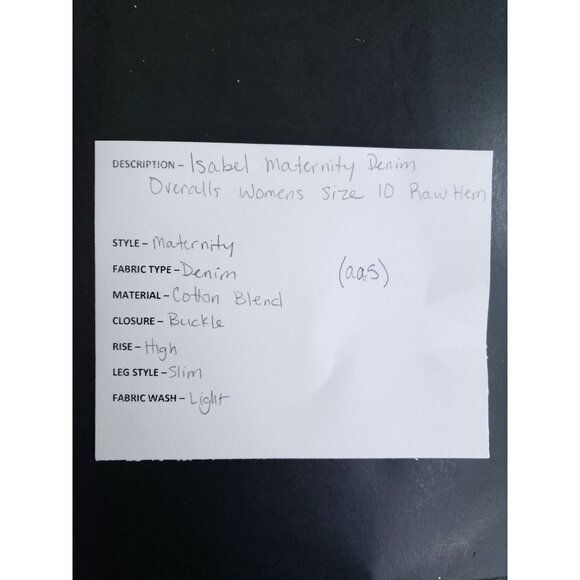 DESCRIPTION – Isabel Maternity Denim
Overalls Womens Size 10 Raw Hem
STYLE – Maternity
FABRIC TYPE – Denim (aa5)
MATERIAL – Cotton Blend
CLOSURE – Buckle
RISE – High
LEG STYLE – Slim
FABRIC WASH – Light